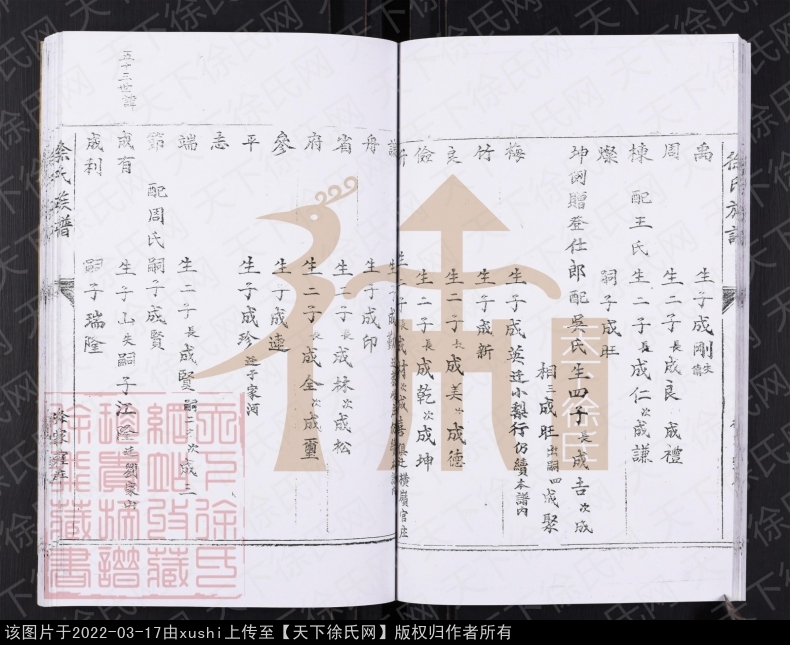 徐氏族譜
禹 生子成剛失傳
周 生二子長成良 成禮
棟 配王氏 生二子長成仁次成謙
燦 嗣子成旺
坤 例贈登仕郎配吳氏生四子長成吉次成
相三成旺出嗣四成聚
梅 生子成英迁小梨行仍續本譜內
竹 生子成新
良 生二子長成美次成德
儉 生二子長成乾次成坤
舟 生子成印
省 生二子長成林次成松
府 生二子長成全次成璽
參 生子成連
平 生子成珍迁于家河
志
端 生二子長成賢嗣二子次成三
第 配周氏嗣子成賢
五十三世諱
成有 生子山失嗣子江
成利 嗣子瑞隆
徐氏族譜
天下徐氏
天下徐氏网
徐氏藏書
该图片于2022-03-17由xushi上传至【天下徐氏网】版权归作者所有